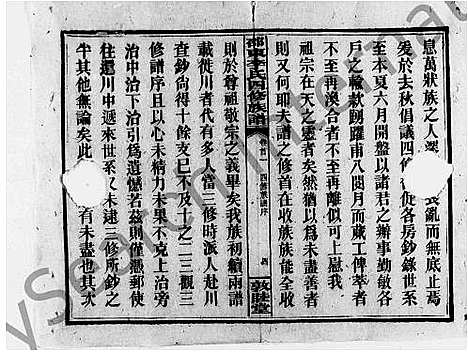 息萬狀族之人深 喪亂而無底止焉
爰於去秋倡議四修 促各房鈔錄世系
至本夏六月開盤以諸君之辦事勤敏各
戶之輸款踴躍甫八閱月而蕆工俾萃者
不至再渙合者不至再離似可上慰我
祖宗在天之靈者矣然猶以爲未盡善者
則又何耶夫譜之修首在收族族能全收
邵東李氏四修族譜
卷首一 四修譜序
敦睦堂
則於尊祖敬宗之義畢矣我族初續兩譜
載徙川者代有多人當三修時派人赴川
查鈔尙得十餘支已不及十之二三觀三
修譜序且以心未精力未果不克上治旁
治中治下治引爲遺憾若茲則僅憑郵使
往還川中遞來世系 未逮三修所鈔之
牛其他無論矣此 有未盡也其次